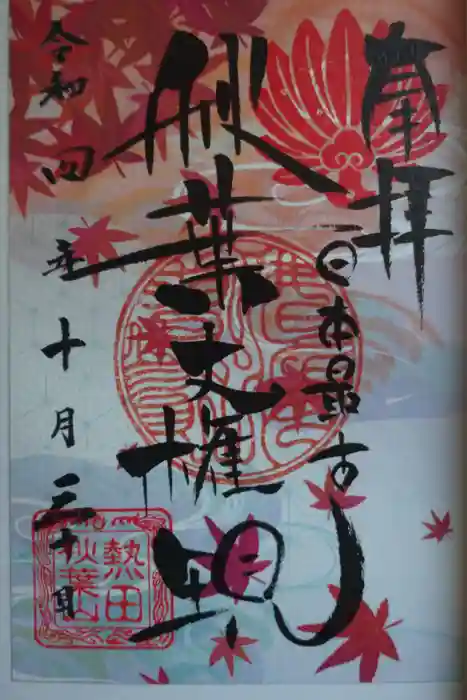 奉拝
日本最古
秋葉大権現
令和四年十月三十日
熱田
秋葉山